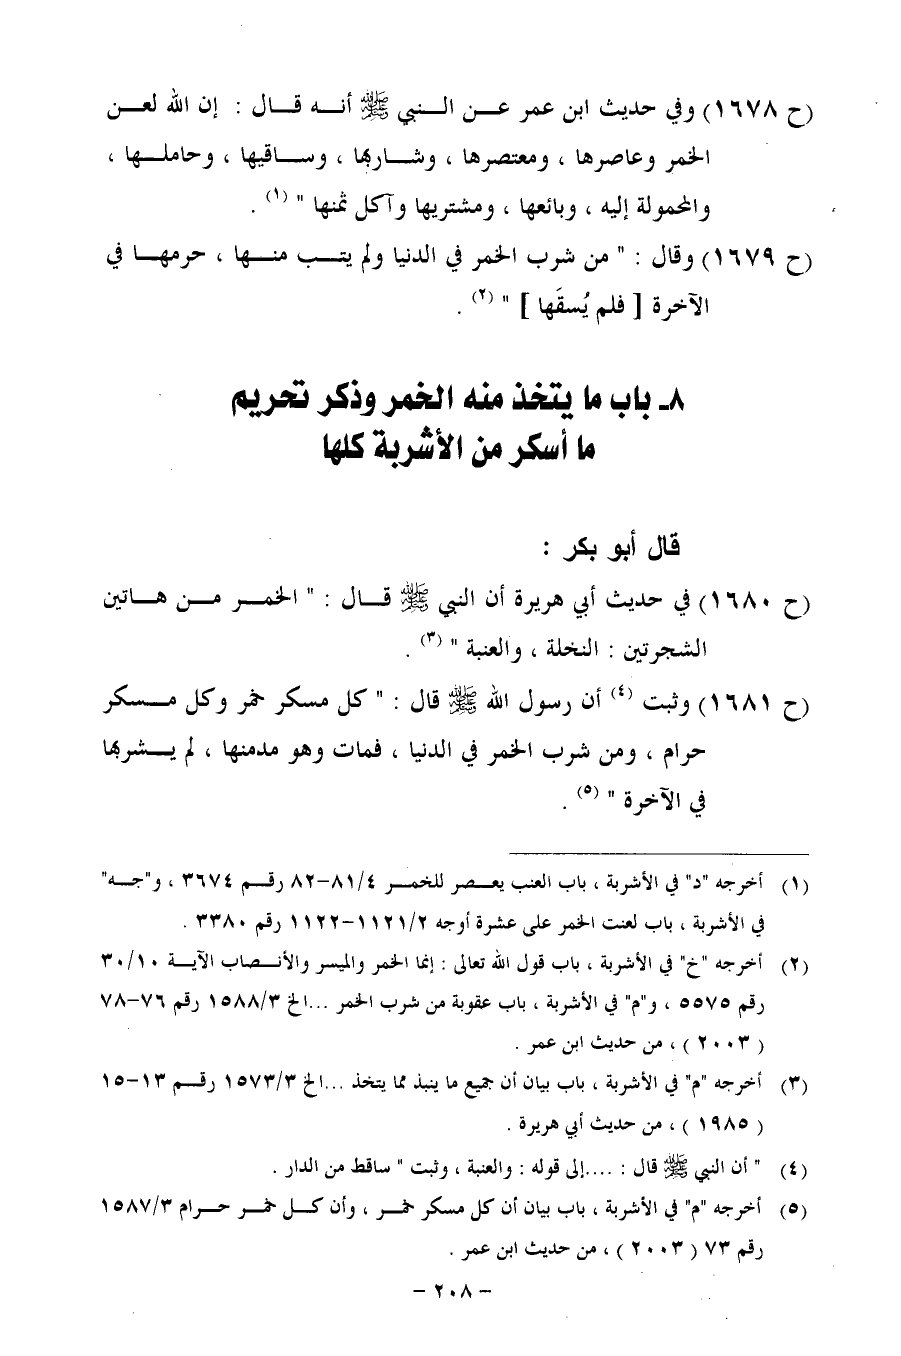 (ح ١٦٧٨) وفي حديث ابن عمر عـن الـنبي ﷺ أنـه قـال : إن الله لعـن
الخمر وعاصرها ، ومعتصرها ، وشـاربها ، وسـاقيها ، وحاملـها ،
والمحمولة إليه ، وبائعها ، ومشتريها وآكل ثمنها " (١) .
(ح ١٦٧٩) وقال : " من شرب الخمر في الدنيا ولم يتـب منـها ، حرمهـا في
الآخرة [ فلم يُسقَها ] " (٢) .
٨ـ باب ما يتخذ منه الخمر وذكر تحريم
ما أسكر من الأشربة كلها
قال أبو بكر :
(ح ١٦٨٠) في حديث أبي هريرة أن النبي ﷺ قـال : " الخمـر مـن هـاتين
الشجرتين : النخلة ، والعنبة " (٣) .
(ح ١٦٨١) وثبت (٤) أن رسول الله ﷺ قال : " كل مسكر خمر وكل مـسكر
حرام ، ومن شرب الخمر في الدنيا ، فمات وهو مدمنها ، لم يـشربها
في الآخرة " (٥) .
(١) أخرجه "د" في الأشربة ، باب العنب يعـصر للخمـر ٨١/٤–٨٢ رقـم ٣٦٧٤ ، و"جـه"
في الأشربة ، باب لعنت الخمر على عشرة أوجه ١١٢١/٢–١١٢٢ رقم ٣٣٨٠ .
(٢) أخرجه "خ" في الأشربة ، باب قول الله تعالى : إنما الخمر والميسر والأنـصاب الآيـة ٣٠/١٠
رقم ٥٥٧٥ ، و"م" في الأشربة ، باب عقوبة من شرب الخمر ...الخ ١٥٨٨/٣ رقم ٧٦–٧٨
( ٢٠٠٣ ) ، من حديث ابن عمر .
(٣) أخرجه "م" في الأشربة ، باب بيان أن جميع ما ينبذ مما يتخذ ...الخ ١٥٧٣/٣ رقـم ١٣–١٥
( ١٩٨٥ ) ، من حديث أبي هريرة .
(٤) " أن النبي ﷺ قال : ....إلى قوله : والعنبة ، وثبت " ساقط من الدار .
(٥) أخرجه "م" في الأشربة ، باب بيان أن كل مسكر خمـر ، وأن كـل خمـر حـرام ١٥٨٧/٣
رقم ٧٣ ( ٢٠٠٣ ) ، من حديث ابن عمر .
– ٢٠٨ –